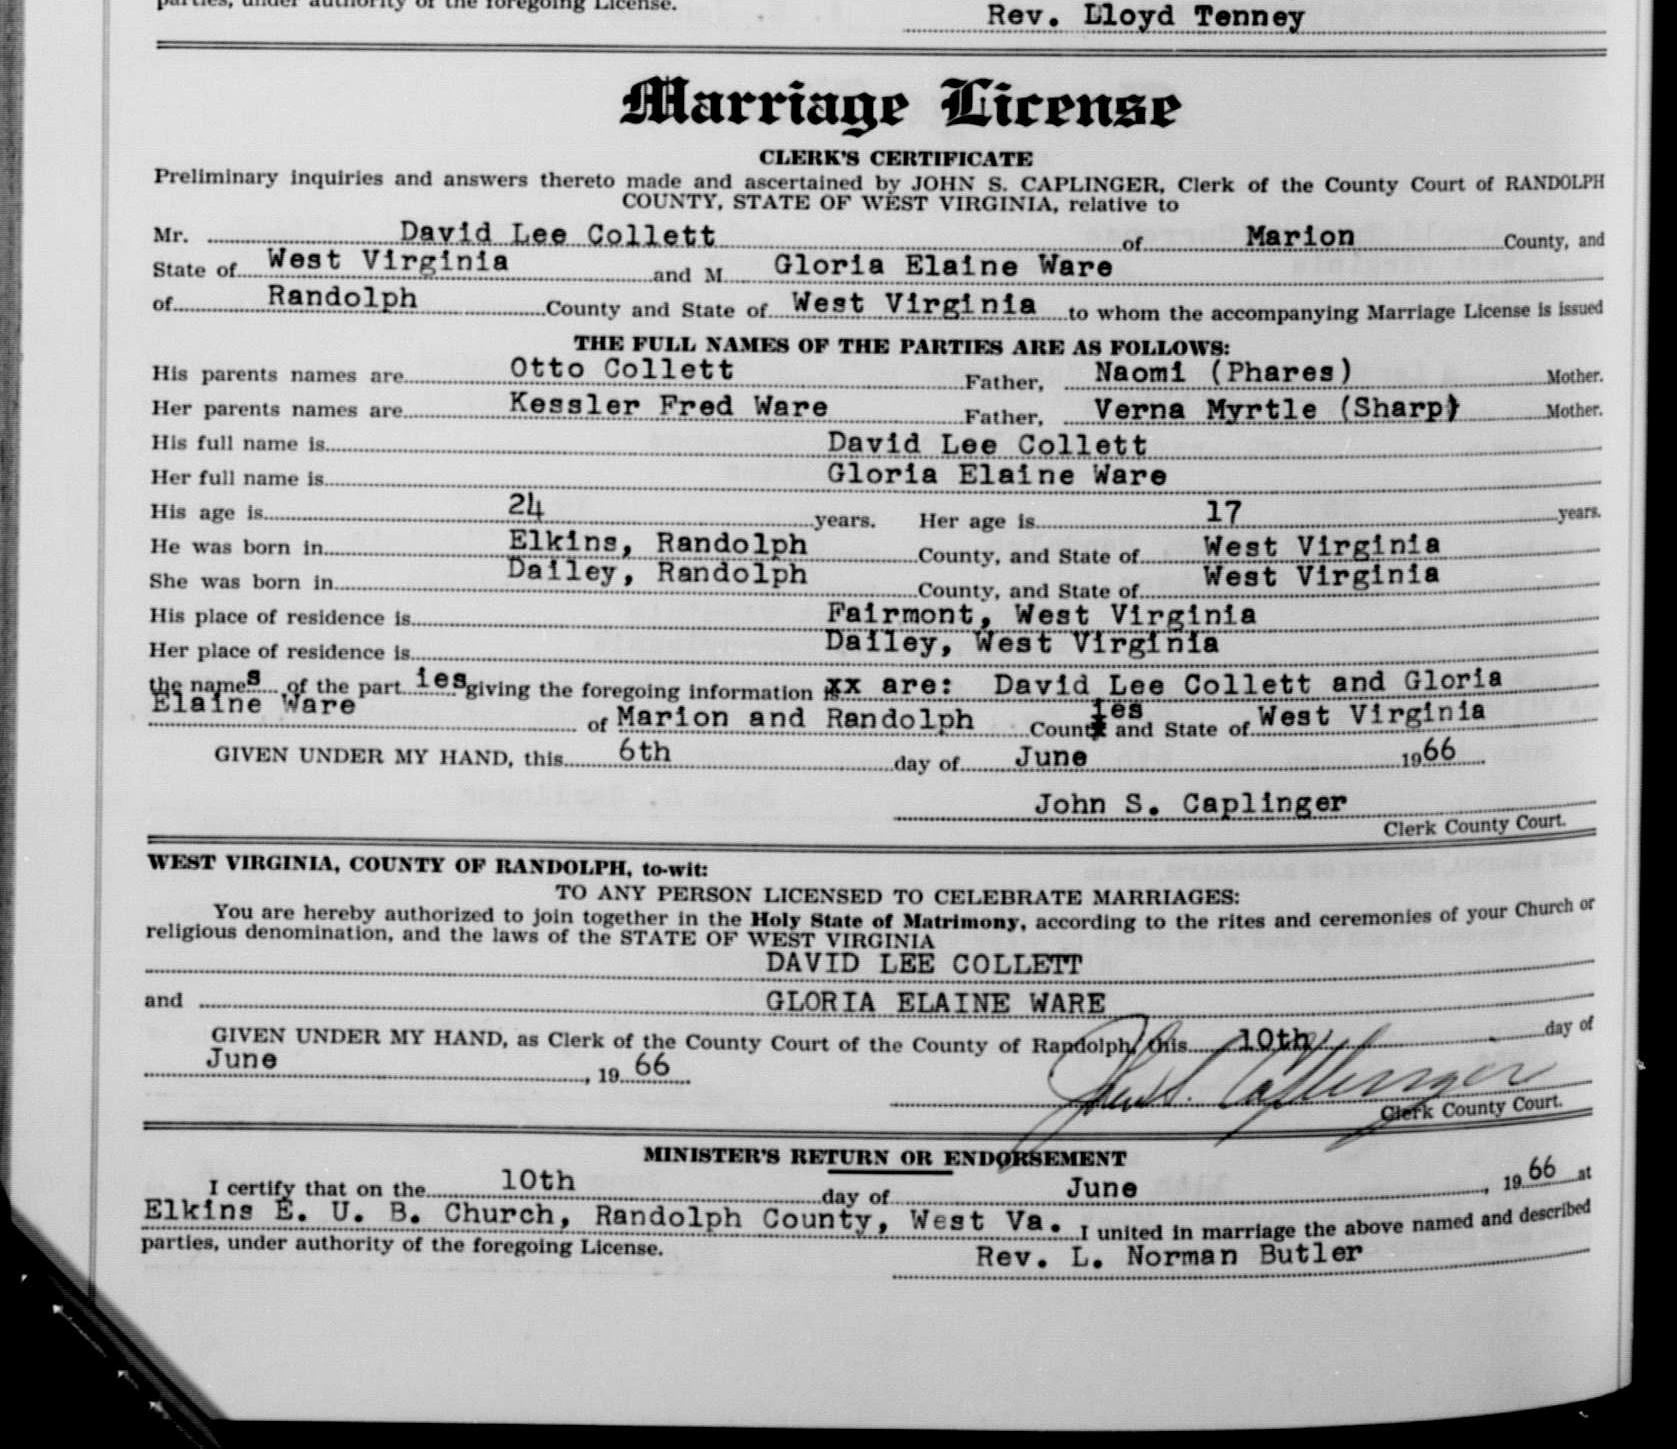 parties, under authority of the foregoing License.
Rev. Lloyd Tenney
Marriage License
CLERK'S CERTIFICATE
Preliminary inquiries and answers thereto made and ascertained by JOHN S. CAPLINGER, Clerk of the County Court of RANDOLPH
COUNTY, STATE OF WEST VIRGINIA, relative to
Mr. David Lee Collett of Marion County, and
State of West Virginia and M Gloria Elaine Ware
of Randolph County and State of West Virginia to whom the accompanying Marriage License is issued
THE FULL NAMES OF THE PARTIES ARE AS FOLLOWS:
His parents names are Otto Collett Father, Naomi (Phares) Mother.
Her parents names are Kessler Fred Ware Father, Verna Myrtle (Sharp) Mother.
His full name is David Lee Collett
Her full name is Gloria Elaine Ware
His age is 24 years. Her age is 17 years.
He was born in Elkins, Randolph County, and State of West Virginia
She was born in Dailey, Randolph County, and State of West Virginia
His place of residence is Fairmont, West Virginia
Her place of residence is Dailey, West Virginia
the names of the part ies giving the foregoing information xx are: David Lee Collett and Gloria
Elaine Ware of Marion and Randolph Counties and State of West Virginia
GIVEN UNDER MY HAND, this 6th day of June 1966
John S. Caplinger
Clerk County Court.
WEST VIRGINIA, COUNTY OF RANDOLPH, to-wit:
TO ANY PERSON LICENSED TO CELEBRATE MARRIAGES:
You are hereby authorized to join together in the Holy State of Matrimony, according to the rites and ceremonies of your Church or
religious denomination, and the laws of the STATE OF WEST VIRGINIA
DAVID LEE COLLETT
and GLORIA ELAINE WARE
GIVEN UNDER MY HAND, as Clerk of the County Court of the County of Randolph, this 10th day of
June, 19 66
John S. Caplinger
Clerk County Court.
MINISTER'S RETURN OR ENDORSEMENT
I certify that on the 10th day of June, 19 66 at
Elkins E. U. B. Church, Randolph County, West Va. I united in marriage the above named and described
parties, under authority of the foregoing License.
Rev. L. Norman Butler